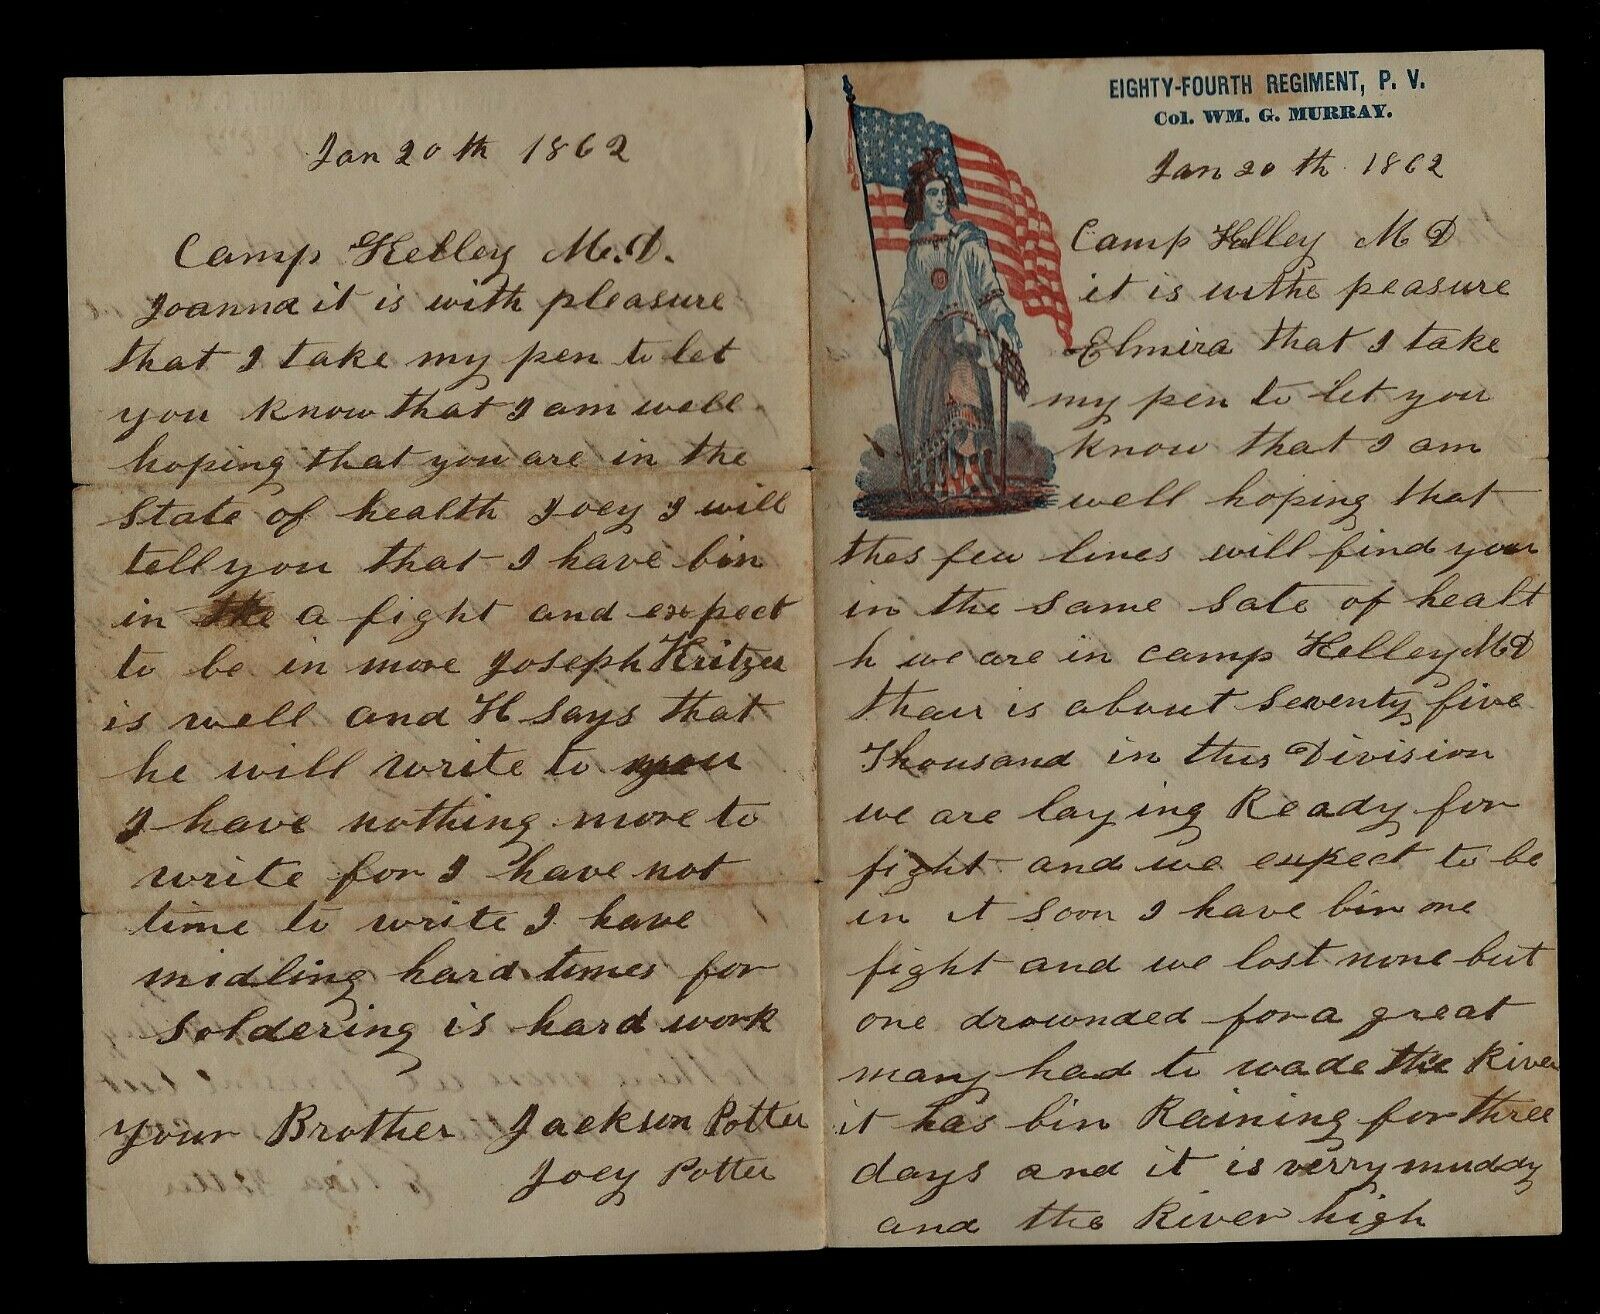 Jan 20th 1862
Camp Kelley M.D.
Joanna it is with pleasure
that I take my pen to let
you know that I am well
hoping that you are in the
State of health Joey I will
tell you that I have bin
in the a fight and expect
to be in more Joseph Kritzer
is well and H says that
he will write to you
I have nothing more to
write for I have not
time to write I have
midling hard times for
Soldering is hard work
your Brother Jackson Potter
Joey Potter
EIGHTY-FOURTH REGIMENT, P. V.
Col. WM. G. MURRAY.
Jan 20th 1862
Camp Kelley M D
it is withe peasure
Elmira that I take
my pen to let you
know that I am
well hoping that
thes few lines will find you
in the same sate of healt
h we are in camp Kelley MD
thair is about Seventy five
Thousand in this Division
we are laying Ready for
fight and we expect to be
in it soon I have bin one
fight and we lost none but
one drownded for a great
many had to wade the River
it has bin Raining for three
days and it is verry muddy
and the River high